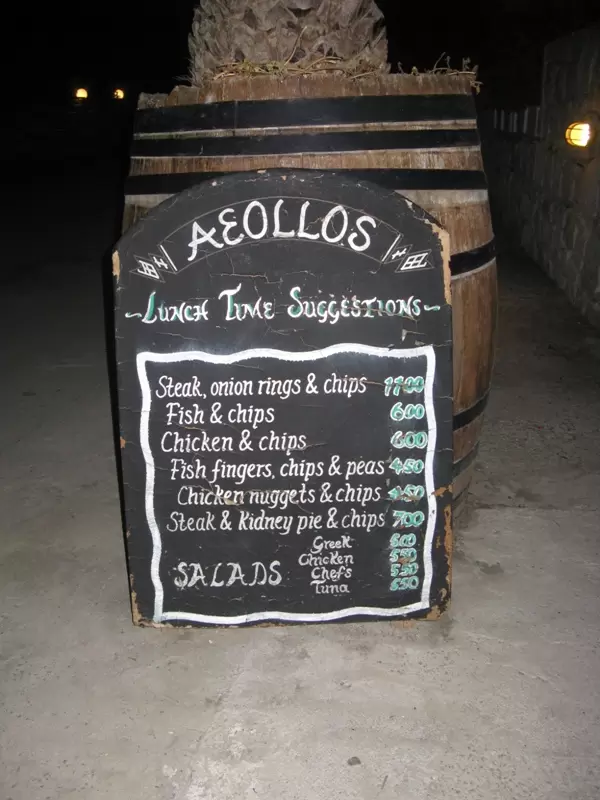 AEOLLOS
~LUNCH TIME SUGGESTIONS~
Steak, onion rings & chips 11·00
Fish & chips 6·00
Chicken & chips 6·00
Fish fingers, chips & peas 4·50
Chicken nuggets & chips 4·50
Steak & kidney pie & chips 7·00
SALADS
Greek
Chicken 5·50
Chef's 5·50
Tuna 6·50